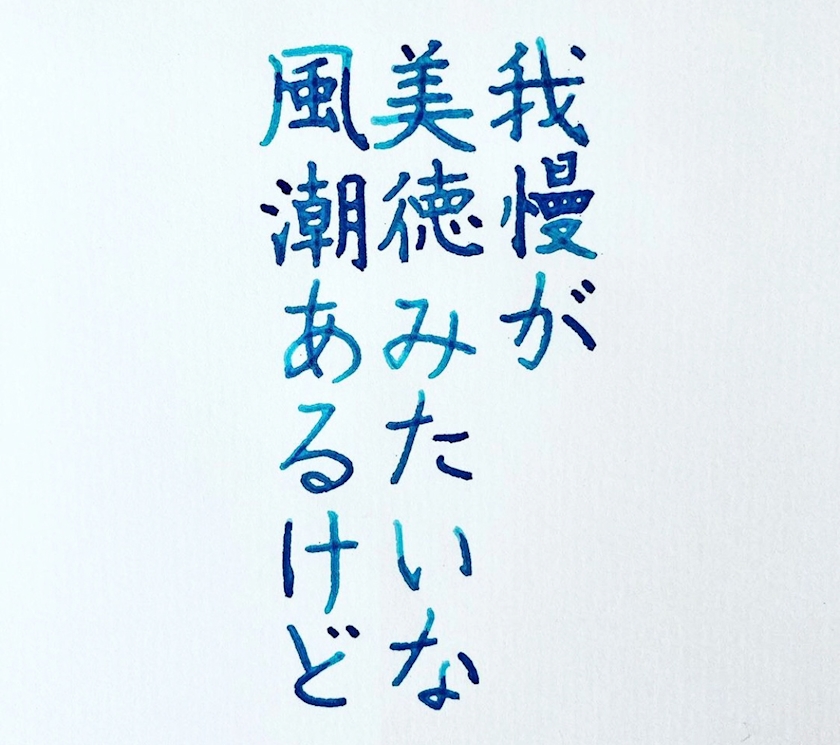 我慢が
美徳みたいな
風潮あるけど